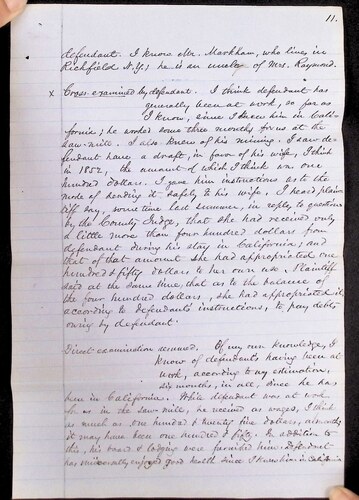 11.
defendant. I know Mr. Markham, who lives in
Richfield N.Y.; he is an uncle of Mrs. Raymond.
x Cross-examined by defendant. I think defendant has
generally been at work, so far as
I know, since I knew him in Cali-
fornia; he worked some three months for us at the
saw-mill. I also knew of his mining. I saw de-
fendant have a draft, in favor of his wife, I think
in 1852, the amount of which I think was one
hundred dollars. I gave him instructions as to the
mode of sending it safely to his wife. I heard plain-
tiff say, some time last summer, in reply to questions
by the County Judge, that she had received only
a little more than four hundred dollars from
defendant during his stay in California; and
that of that amount she had appropriated one
hundred & fifty dollars to her own use. Plaintiff
said at the same time, that as to the balance of
the four hundred dollars, she had appropriated it
according to defendants instructions, to pay debts
owing by defendant.
Direct examination resumed. Of my own knowledge, I
know of defendants having been at
work, according to my estimation,
six months, in all, since he has
been in California. While defendant was at work
for us in the saw mill, he received as wages, I think
as much as one hundred & twenty five dollars, a month;
it may have been one hundred & fifty. In addition to
this, his board & lodging were furnished him. Defendant
has enjoyed good health since I knew him in California